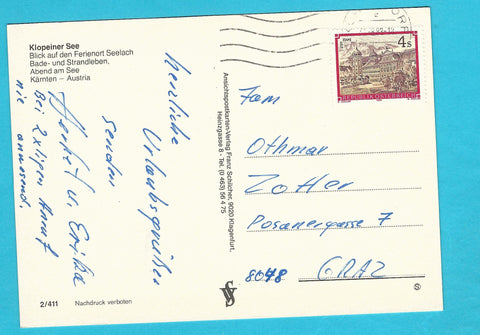 Klopeiner See
Blick auf den Ferienort Seelach
Bade- und Strandleben,
Abend am See
Kärnten – Austria
Herzliche
Urlaubsgrüße
senden
Herbert u. Erika
Bei 2 x ligen Anruf
nie anwesend.
2/411 Nachdruck verboten
Ansichtspostkarten-Verlag Franz Schilcher, 9020 Klagenfurt,
Heinzgasse 8 · Tel. (0 463) 56 4 75
4 S
REPUBLIK ÖSTERREICH
Fam
Othmar
Zotter
Posanergasse 7
8048 GRAZ